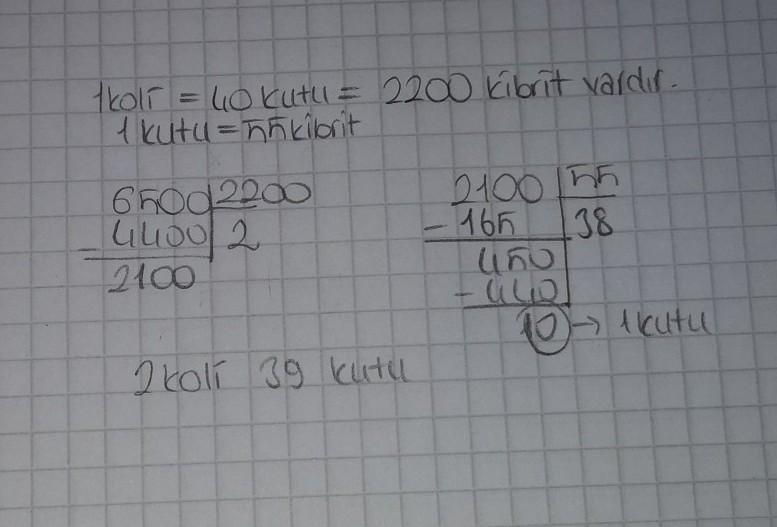 1 koli = 40 kutu = 2200 kibrit vardır.
1 kutu = 55 kibrit
6500 2200
- 4400 2
2100
2100 55
- 165 38
450
- 440
10 → 1 kutu
2 koli 39 kutu